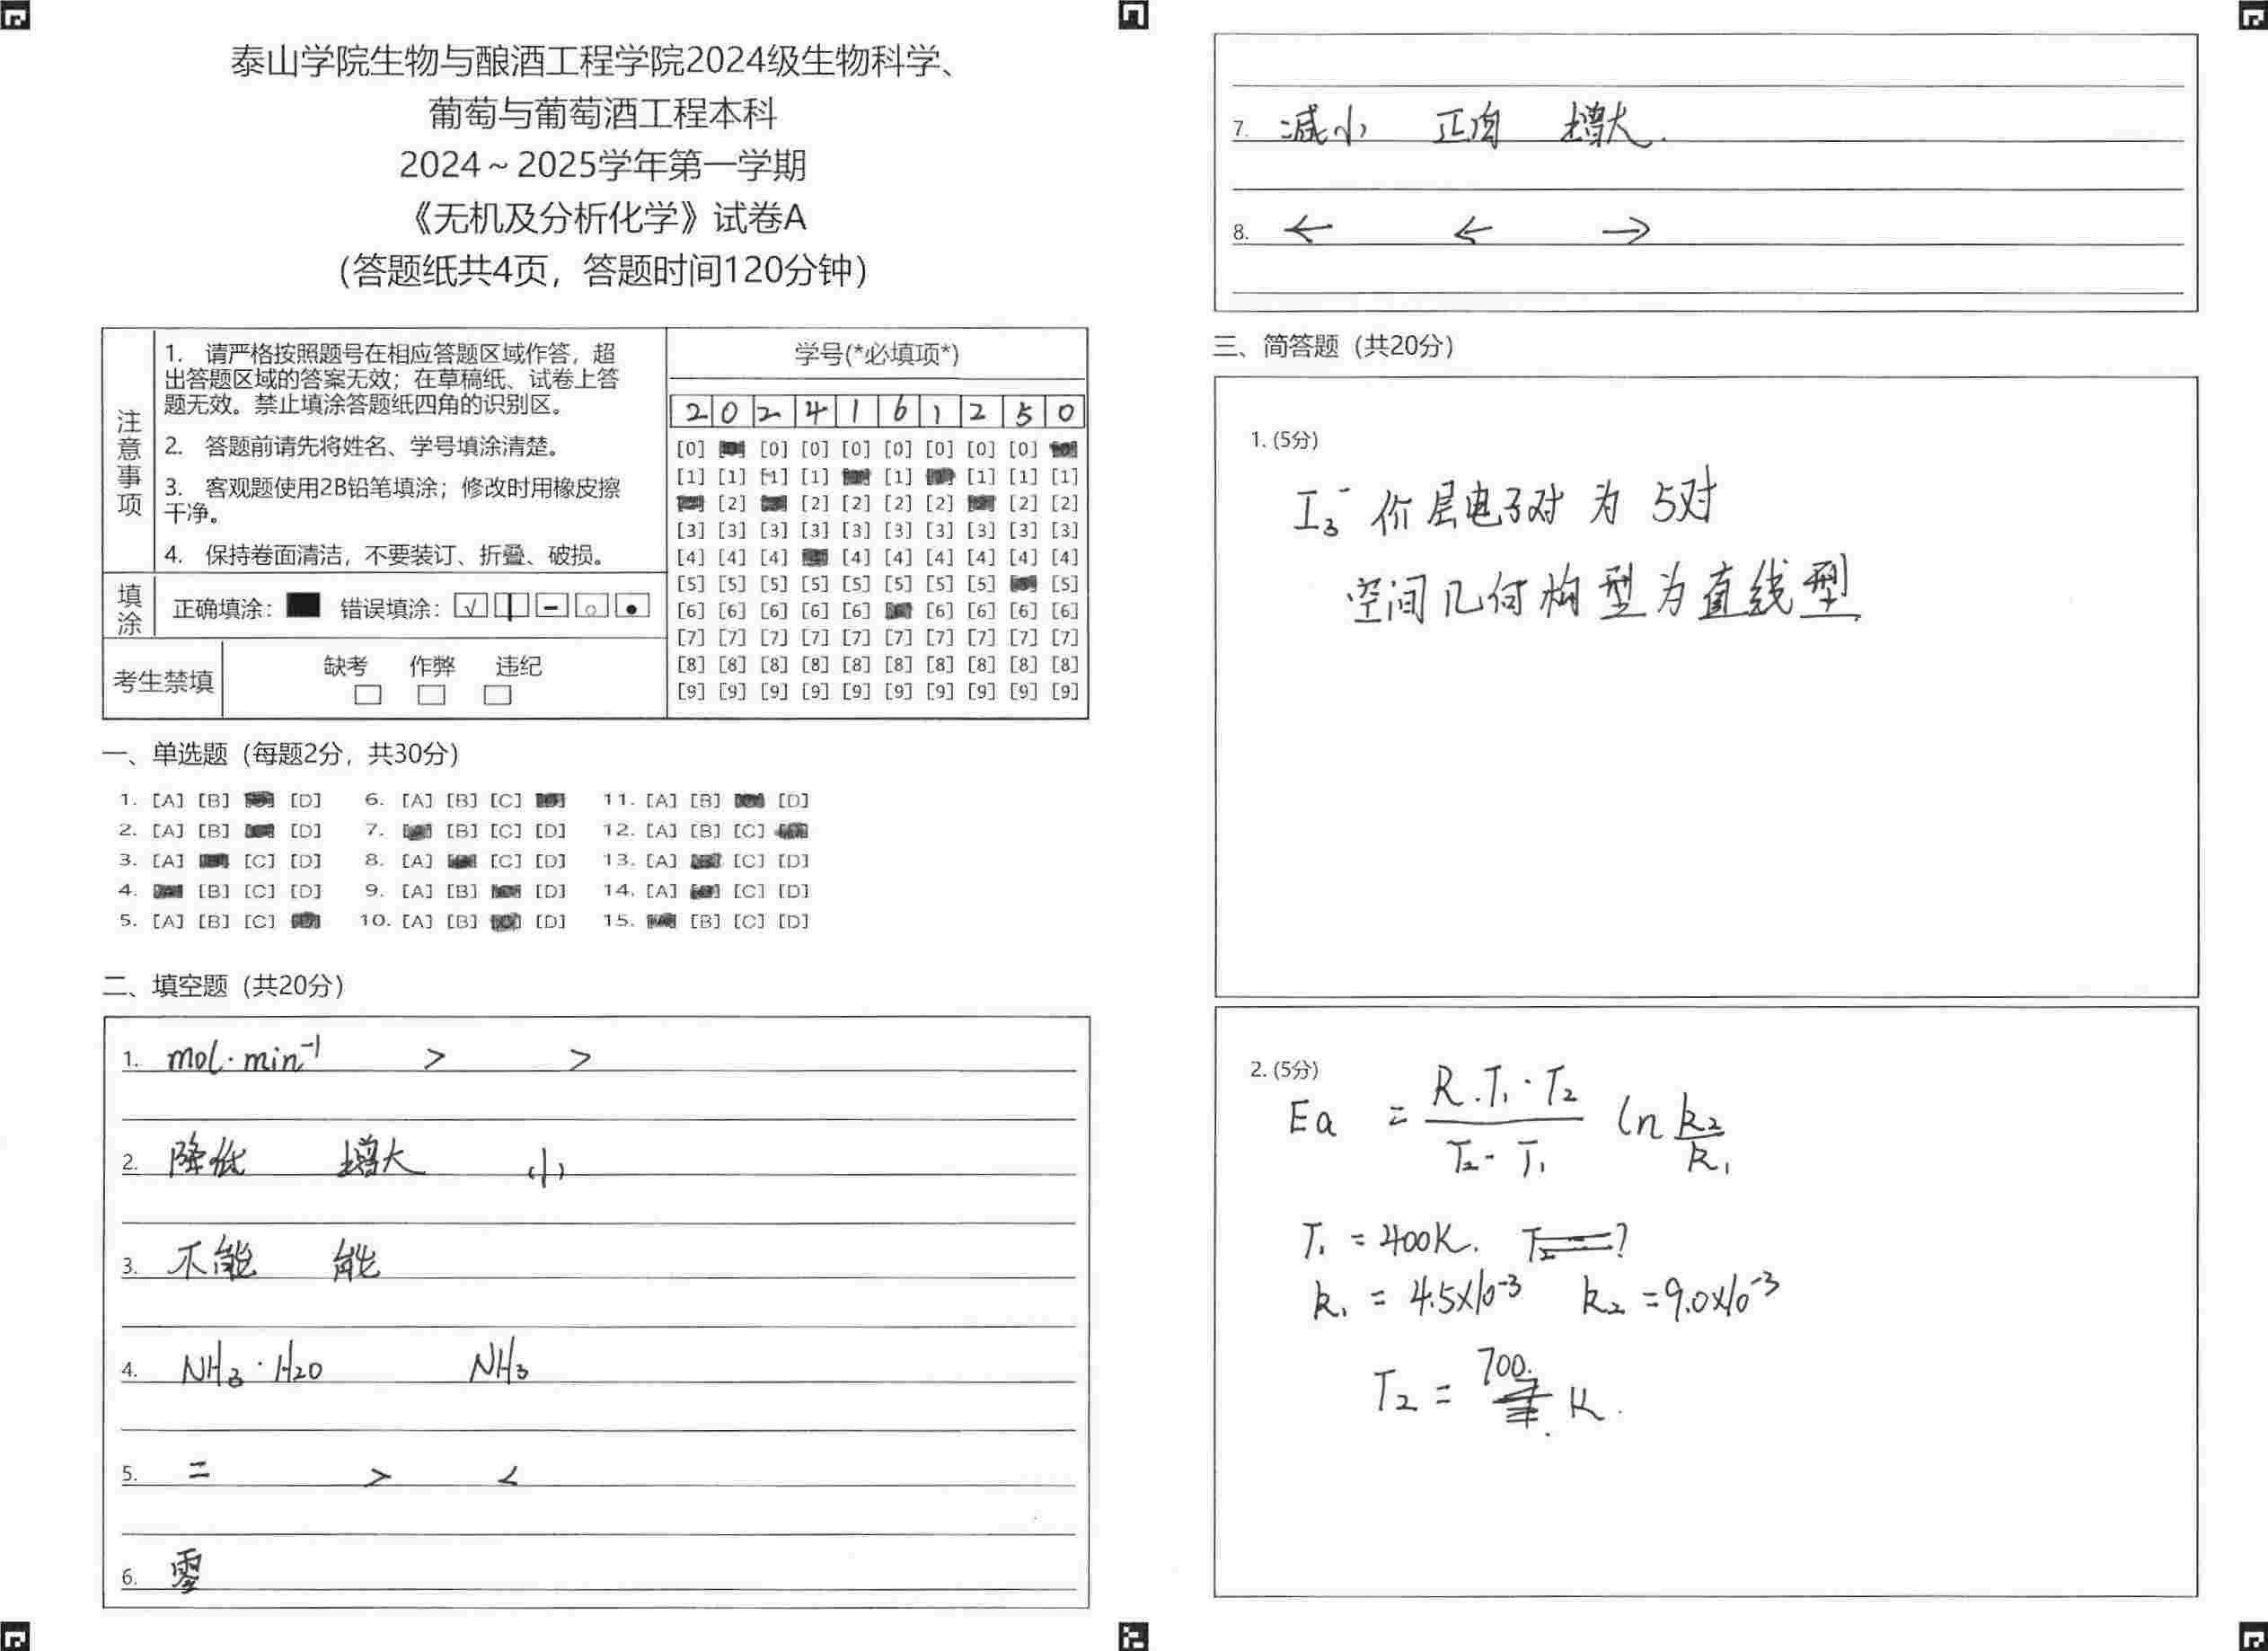 泰山学院生物与酿酒工程学院2024级生物科学、
葡萄与葡萄酒工程本科
2024～2025学年第一学期
《无机及分析化学》试卷A
（答题纸共4页，答题时间120分钟）
注意事项
1. 请严格按照题号在相应答题区域作答，超
出答题区域的答案无效；在草稿纸、试卷上答
题无效。禁止填涂答题纸四角的识别区。
2. 答题前请先将姓名、学号填涂清楚。
3. 客观题使用2B铅笔填涂；修改时用橡皮擦
干净。
4. 保持卷面清洁，不要装订、折叠、破损。
填涂
正确填涂： 错误填涂：
考生禁填
缺考 作弊 违纪
学号(*必填项*)
2 0 2 4 1 6 1 2 5 0
[0] [0] [0] [0] [0] [0] [0] [0]
[1] [1] [1] [1] [1] [1] [1] [1]
[2] [2] [2] [2] [2] [2] [2]
[3] [3] [3] [3] [3] [3] [3] [3] [3] [3]
[4] [4] [4] [4] [4] [4] [4] [4] [4]
[5] [5] [5] [5] [5] [5] [5] [5] [5]
[6] [6] [6] [6] [6] [6] [6] [6] [6]
[7] [7] [7] [7] [7] [7] [7] [7] [7] [7]
[8] [8] [8] [8] [8] [8] [8] [8] [8] [8]
[9] [9] [9] [9] [9] [9] [9] [9] [9] [9]
一、单选题（每题2分，共30分）
1. [A] [B] [D] 6. [A] [B] [C] 11. [A] [B] [D]
2. [A] [B] [D] 7. [B] [C] [D] 12. [A] [B] [C]
3. [A] [C] [D] 8. [A] [C] [D] 13. [A] [C] [D]
4. [B] [C] [D] 9. [A] [B] [D] 14. [A] [C] [D]
5. [A] [B] [C] 10. [A] [B] [D] 15. [B] [C] [D]
二、填空题（共20分）
1. mol·min⁻¹ > >
2. 降低 增大 小
3. 不能 能
4. NH₃·H₂O NH₃
5. = > <
6. 零
7. 减小 正向 增大.
8. ← ← →
三、简答题（共20分）
1. (5分)
I₃⁻ 价层电子对 为 5对
空间几何构型为直线型
2. (5分)
Ea = R.T₁·T₂ / T₂-T₁ ln k₂/k₁
T₁ = 400K. T₂ = ?
k₁ = 4.5×10⁻³ k₂ = 9.0×10⁻³
T₂ = 700. K.